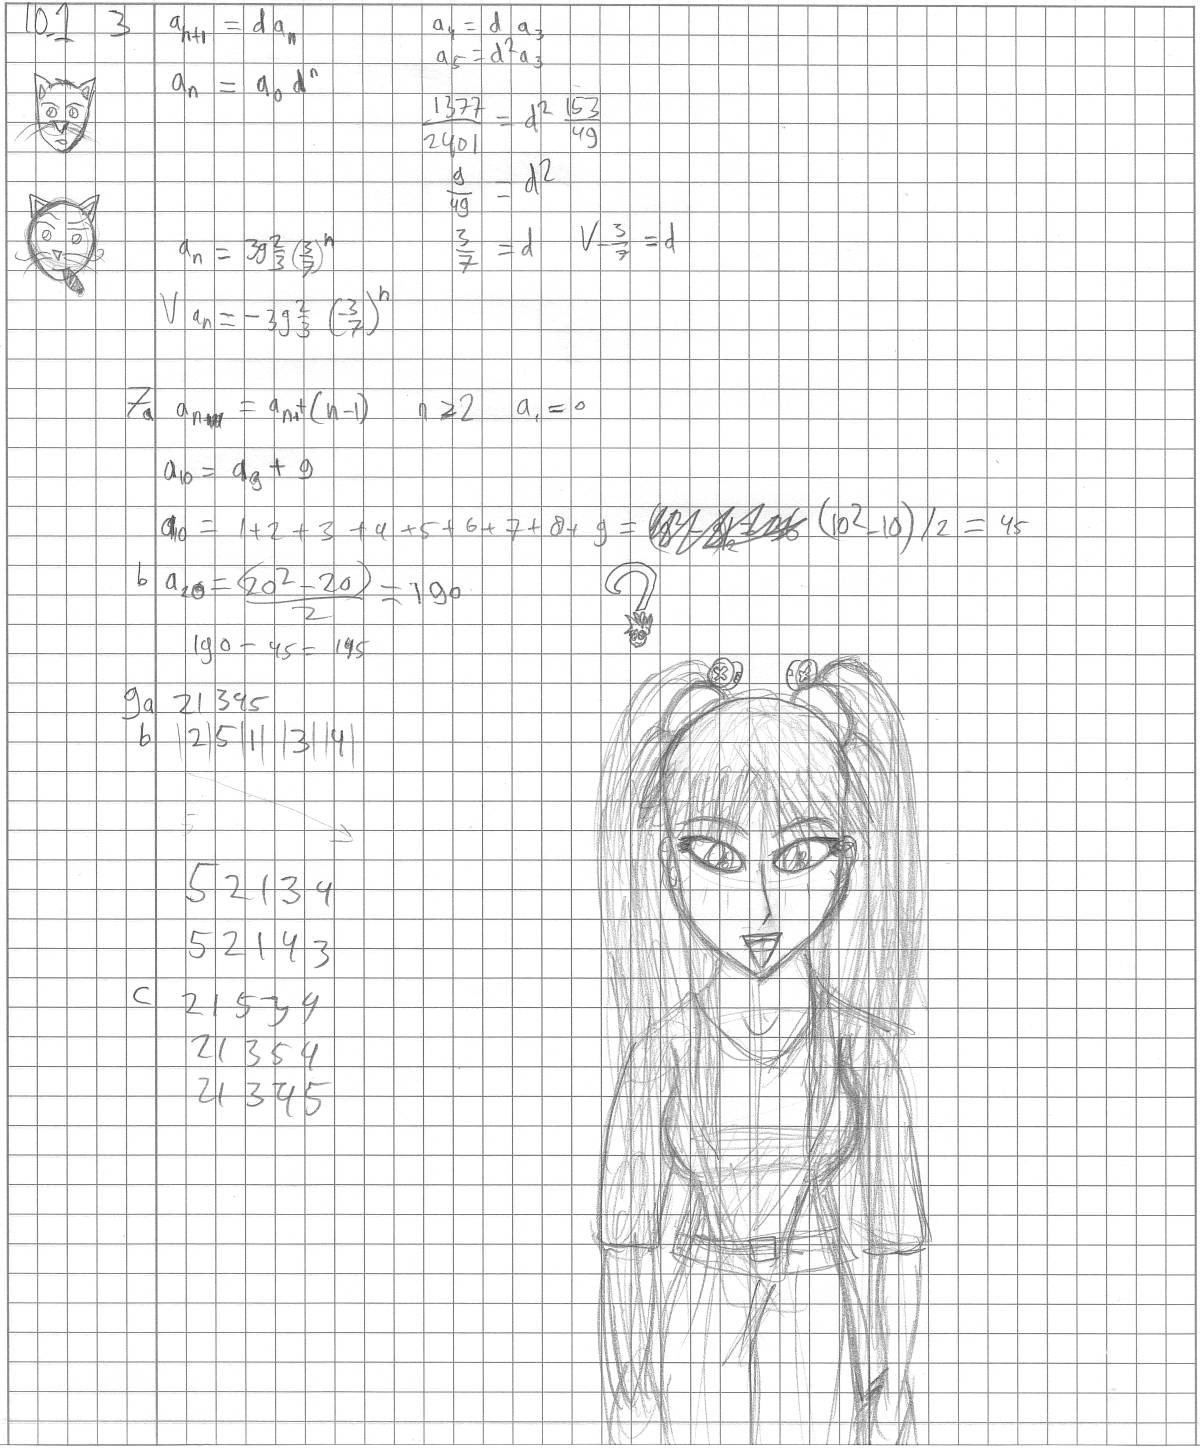 10.1 3 a_{n+1} = d a_n
a_n = a_0 d^n
a_4 = d a_3
a_5 = d^2 a_3
1377/2401 = d^2 153/49
9/49 = d^2
3/7 = d V -3/7 = d
a_n = 39 2/3 (3/7)^n
V a_n = -39 2/3 (-3/7)^n
7a a_n = a_{n-1} + (n-1) n ≥ 2 a_1 = 0
a_10 = a_9 + 9
a_10 = 1+2+3+4+5+6+7+8+9 = (10^2-10)/2 = 45
b a_20 = (20^2-20)/2 = 190
190 - 45 = 145
?
9a 21345
b |2|5|1| |3| |4|
5 2 1 3 4
5 2 1 4 3
c 2 1 5 3 4
21 3 5 4
21 3 4 5